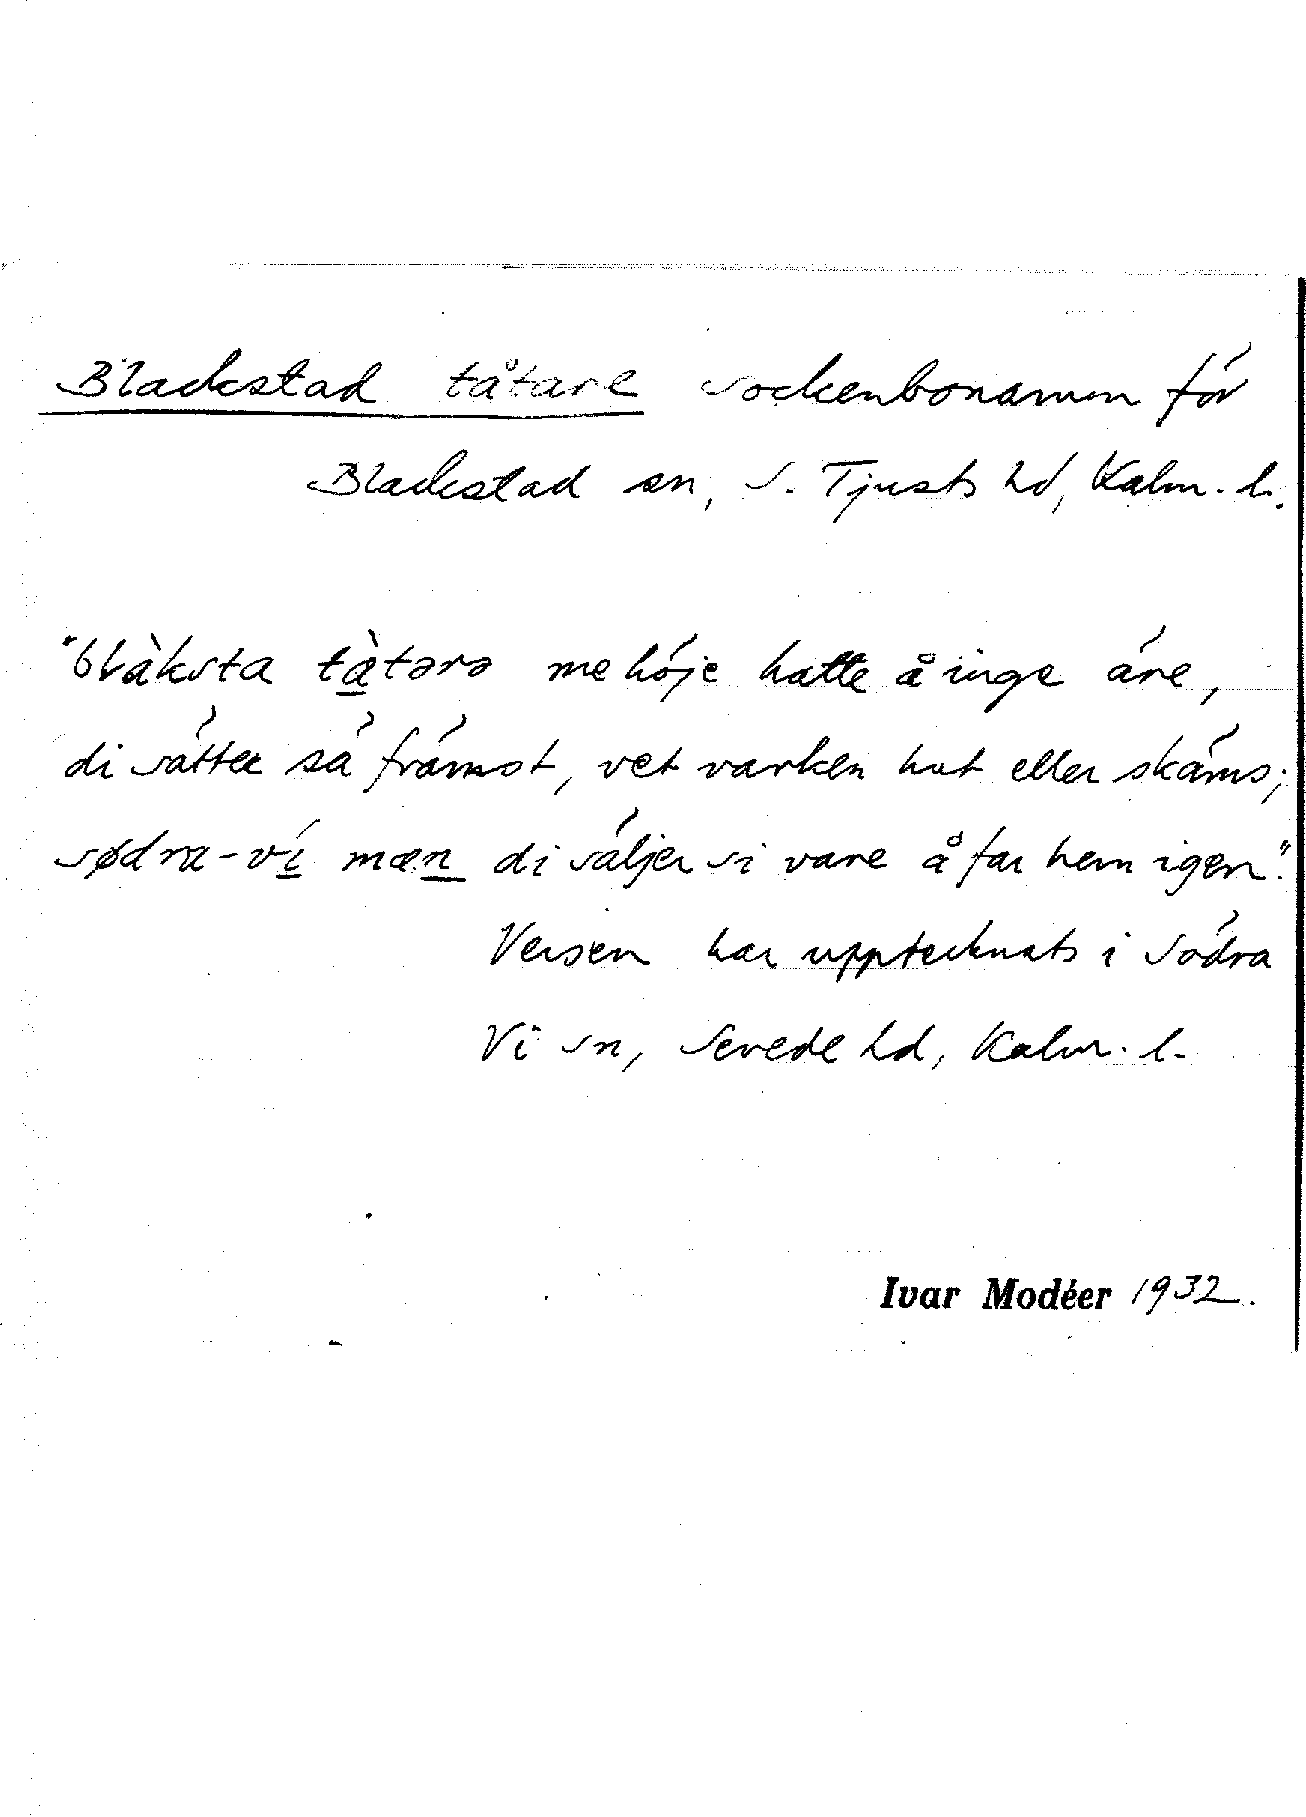 Blackstad tåtare sockenbonamn för
Blackstad sn, S. Tjusts hd, Kalm. l.
"blàksta tàtərə me höje hatte å inge äre,
di sätter sä främst, vet varken hut eller skäms;
sødra-ví mæn di säljer si vare å far hem igen."
Versen har upptecknats i Södra
Vi sn, Sevede hd, Kalm. l.
Ivar Modéer 1932.